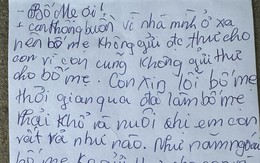 - Bố Mẹ ơi!
+ con không buồn vì nhà mình ở xa
nên bố mẹ không gửi đc thư cho
con vì con cũng không gửi thư
cho bố mẹ. Con xin lỗi bố mẹ
thời gian qua đã làm bố mẹ
phải khổ và nuôi chị em con
vất vả như nào. Như năm ngoái
bố mẹ